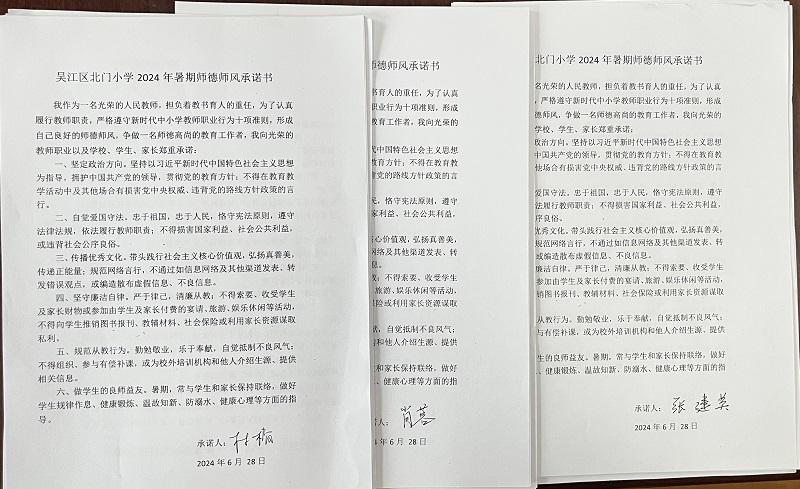 吴江区北门小学 2024 年暑期师德师风承诺书
我作为一名光荣的人民教师，担负着教书育人的重任，为了认真
履行教师职责，严格遵守新时代中小学教师职业行为十项准则，形成
自己良好的师德师风，争做一名师德高尚的教育工作者，我向光荣的
教师职业以及学校、学生、家长郑重承诺：
一、坚定政治方向。坚持以习近平新时代中国特色社会主义思想
为指导，拥护中国共产党的领导，贯彻党的教育方针；不得在教育教
学活动中及其他场合有损害党中央权威、违背党的路线方针政策的言
行。
二、自觉爱国守法。忠于祖国，忠于人民，恪守宪法原则，遵守
法律法规，依法履行教师职责；不得损害国家利益、社会公共利益，
或违背社会公序良俗。
三、传播优秀文化。带头践行社会主义核心价值观，弘扬真善美，
传递正能量；规范网络言行，不通过如信息网络及其他渠道发表、转
发错误观点，或编造散布虚假信息、不良信息。
四、坚守廉洁自律。严于律己，清廉从教；不得索要、收受学生
及家长财物或参加由学生及家长付费的宴请、旅游、娱乐休闲等活动，
不得向学生推销图书报刊、教辅材料、社会保险或利用家长资源谋取
私利。
五、规范从教行为。勤勉敬业，乐于奉献，自觉抵制不良风气；
不得组织、参与有偿补课，或为校外培训机构和他人介绍生源、提供
相关信息。
六、做学生的良师益友。暑期，常与学生和家长保持联络，做好
学生规律作息、健康锻炼、温故知新、防溺水、健康心理等方面的指
导。
承诺人：
2024 年 6 月 28 日
师德师风承诺书
教书育人的重任，为了认
职业行为十项准则，形成
教育工作者，我向光荣的
中国特色社会主义思想
方针；不得在教育教
党的路线方针政策的
恪守宪法原则，遵守
利益、社会公共利益，
核心价值观，弘扬真善美，
网络及其他渠道发表、转
不得索要、收受学生
旅游、娱乐休闲等活动，
保险或利用家长资源谋取
自觉抵制不良风气；
构和他人介绍生源、提供
家长保持联络，做好
水、健康心理等方面的指
承诺人：肖蓉
2024 年 6 月 28 日
北门小学 2024 年暑期师德师风承诺书
名光荣的人民教师，担负着教书育人的重任，为了认真
，严格遵守新时代中小学教师职业行为十项准则，形成
师德师风，争做一名师德高尚的教育工作者，我向光荣的
以及学校、学生、家长郑重承诺：
政治方向。坚持以习近平新时代中国特色社会主义思想
中国共产党的领导，贯彻党的教育方针；不得在教育教
及其他场合有损害党中央权威、违背党的路线方针政策的言
爱国守法。忠于祖国，忠于人民，恪守宪法原则，遵守
依法履行教师职责；不得损害国家利益、社会公共利益，
公序良俗。
优秀文化。带头践行社会主义核心价值观，弘扬真善美，
规范网络言行，不通过如信息网络及其他渠道发表、转
或编造散布虚假信息、不良信息。
廉洁自律。严于律己，清廉从教；不得索要、收受学生
或参加由学生及家长付费的宴请、旅游、娱乐休闲等活动，
推销图书报刊、教辅材料、社会保险或利用家长资源谋取
从教行为。勤勉敬业，乐于奉献，自觉抵制不良风气；
与有偿补课，或为校外培训机构和他人介绍生源、提供
的良师益友。暑期，常与学生和家长保持联络，做好
、健康锻炼、温故知新、防溺水、健康心理等方面的指
承诺人：张建英
2024 年 6 月 28 日